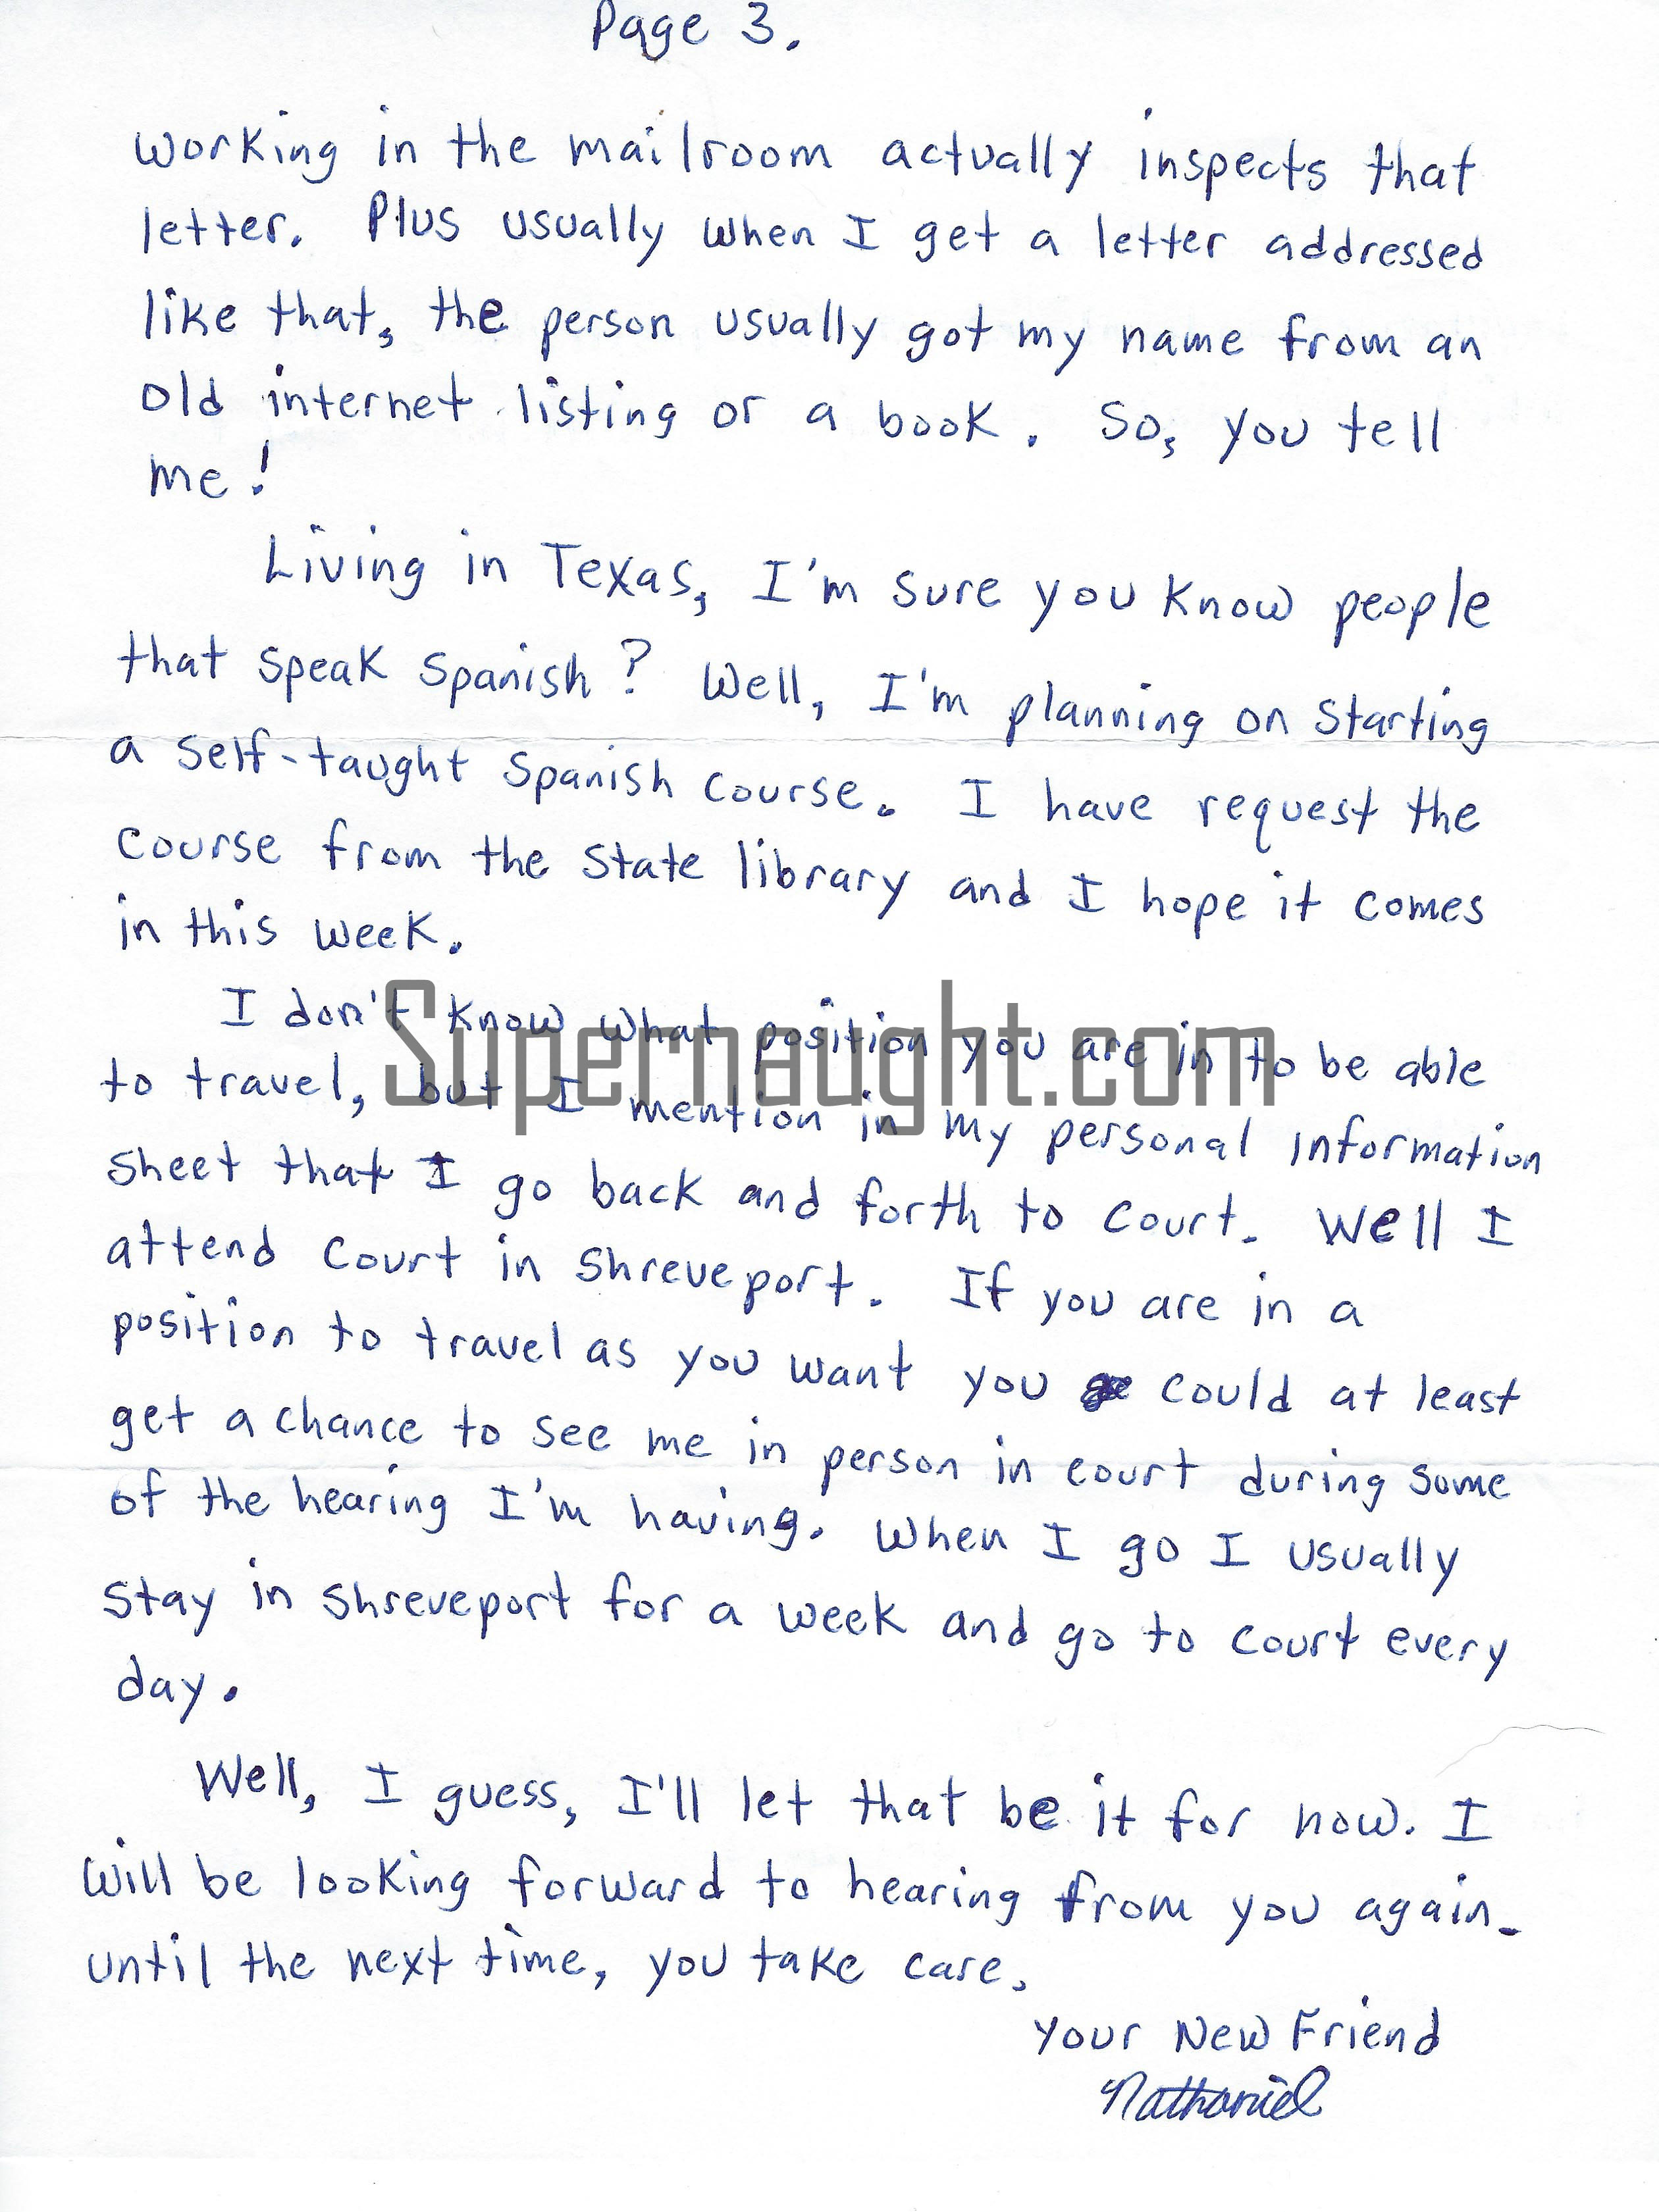 Page 3.
working in the mailroom actually inspects that
letter. Plus usually when I get a letter addressed
like that, the person usually got my name from an
old internet listing or a book. So, you tell
me!
Living in Texas, I'm sure you know people
that speak spanish? Well, I'm planning on starting
a self-taught spanish course. I have request the
course from the state library and I hope it comes
in this week.
I don't know what position you are in to be able
Supernaught.com
to travel, but I mention in my personal information
sheet that I go back and forth to court. Well I
attend court in shreveport. If you are in a
position to travel as you want you could at least
get a chance to see me in person in court during some
of the hearing I'm having. When I go I usually
stay in shreveport for a week and go to court every
day.
Well, I guess, I'll let that be it for now. I
will be looking forward to hearing from you again.
until the next time, you take care.
Your New Friend
Nathaniel